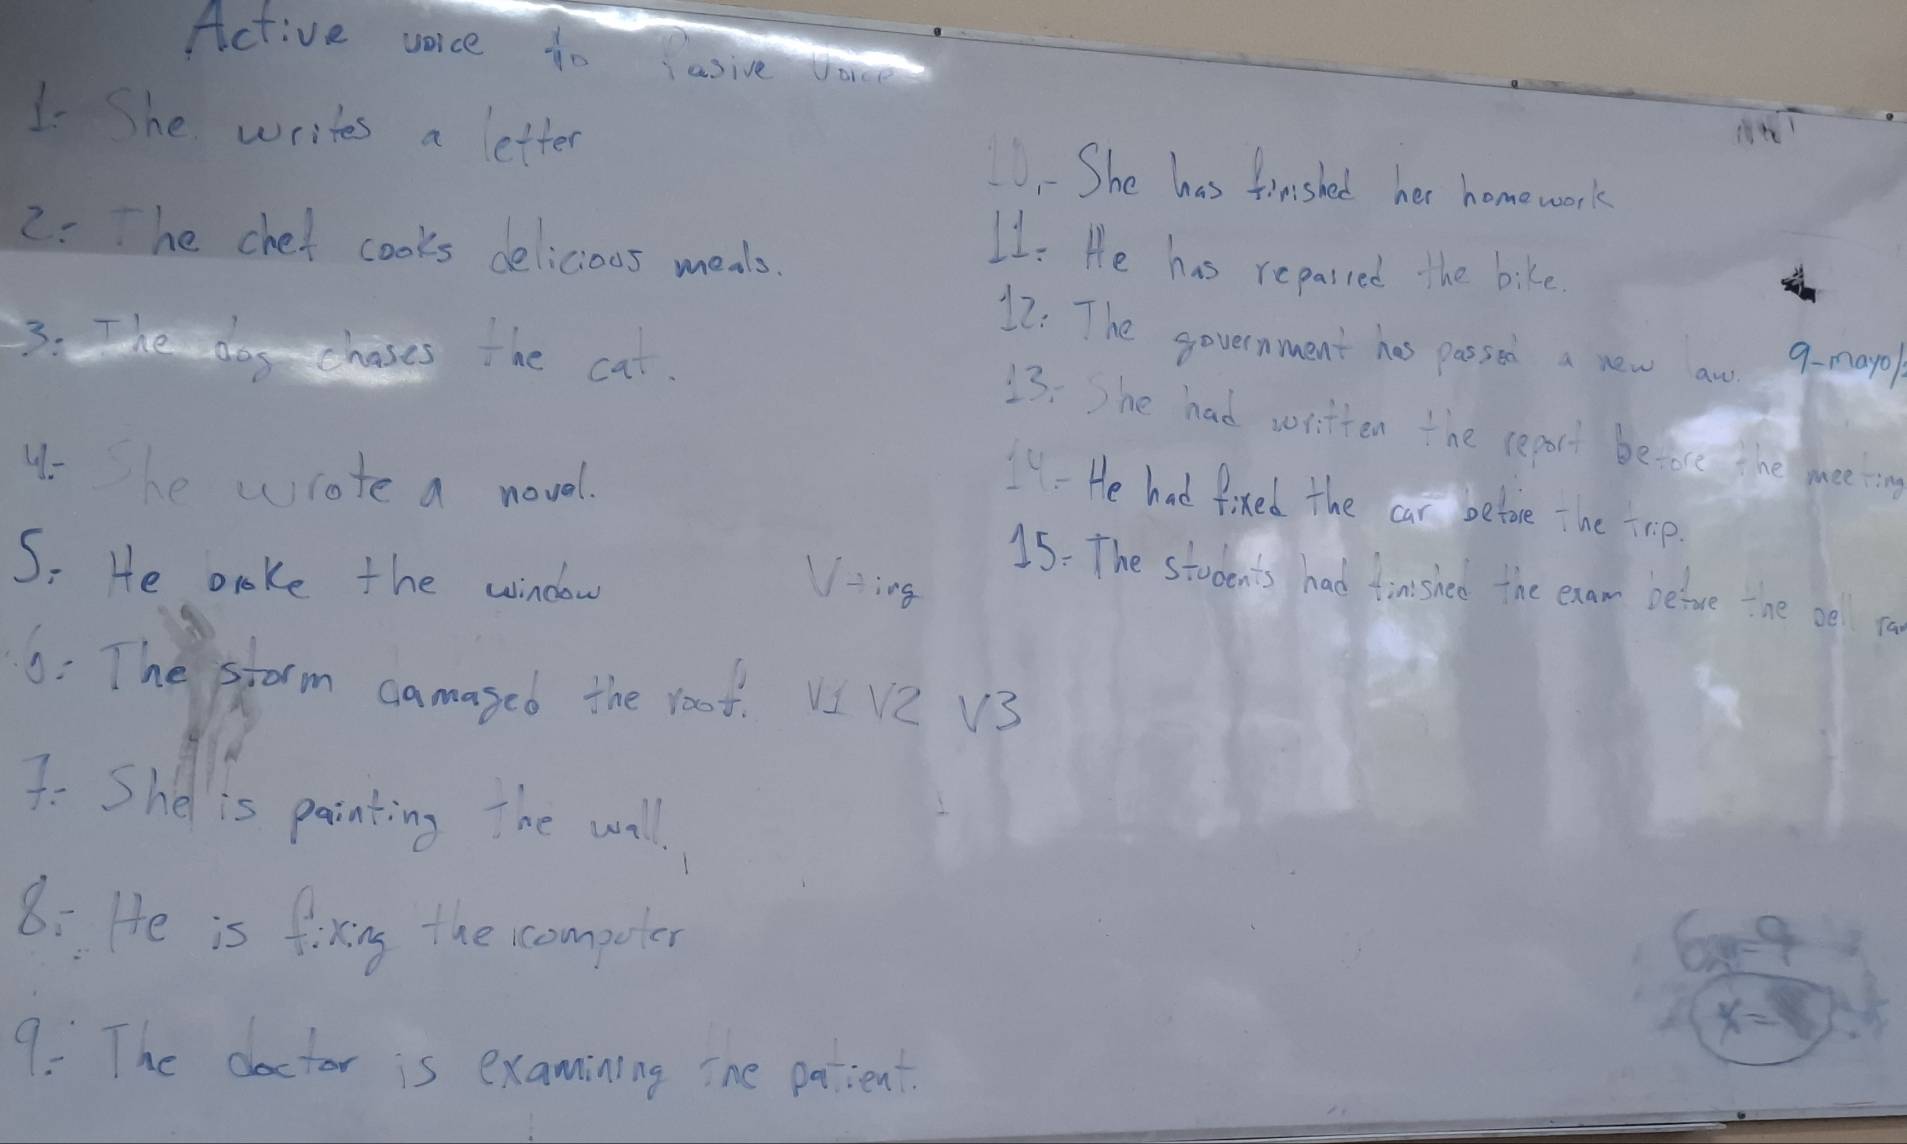 Active voice to Pasive Voice
1.- She writes a letter
2.- The chef cooks delicious meals.
3.- The dog chases the cat.
4.- She wrote a novel.
5.- He broke the window
6.- The storm damaged the roof.
7.- She is painting the wall.
8.- He is fixing the computer
9.- The doctor is examining the patient.
V+ing
V1 V2 V3
10.- She has finished her homework
11.- He has repaired the bike.
12.- The government has passed a new law.
13.- She had written the report before the meeting
14.- He had fixed the car before the trip.
15.- The students had finished the exam before the bell
9-mayo/
x=